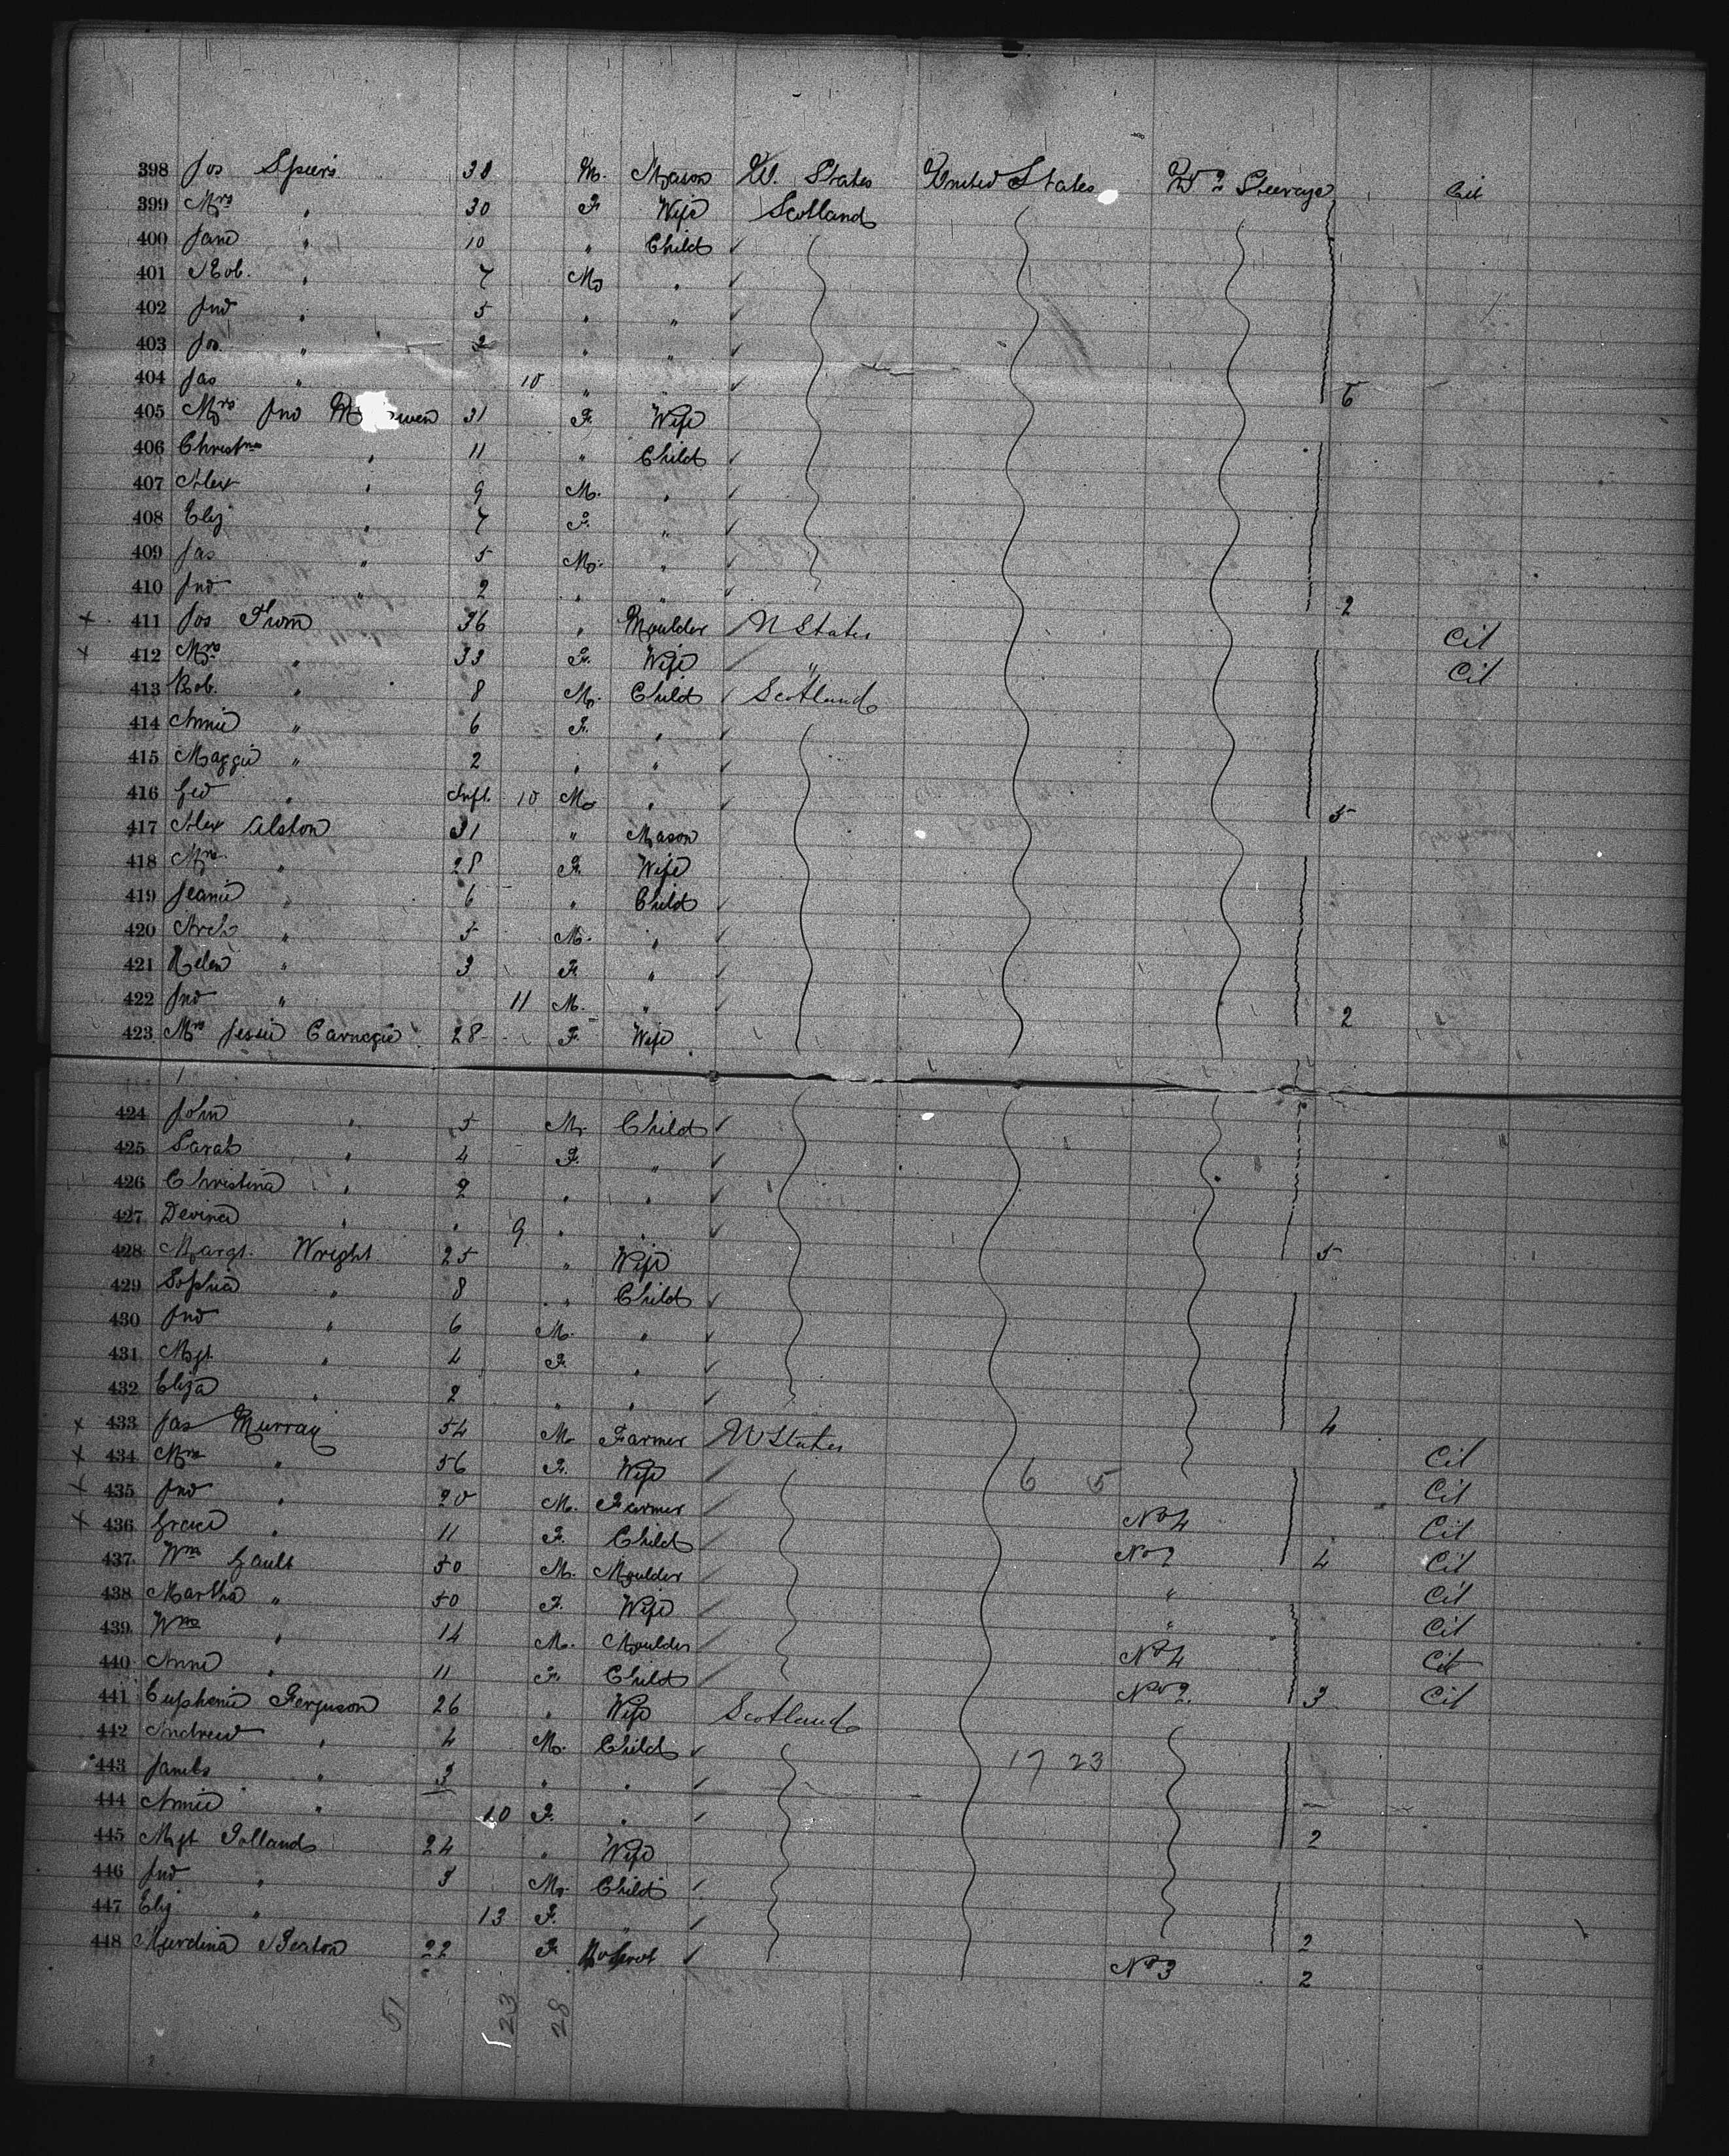 398 Jos Speirs 38 M. Mason U. States United States No 2 Steerage Cit
399 Mrs " 30 F Wife Scotland
400 Jane " 10 " Child ✓
401 Rob. " 7 M " ✓
402 Jno " 5 " " ✓
403 Jos. " 2 " " ✓
404 Jas " 10 " " ✓ 6
405 Mrs Jno 31 F. Wife
406 Christna " 11 " Child ✓
407 Alex " 9 M. " ✓
408 Eliz " 7 F. " ✓
409 Jas " 5 M. " ✓
410 Jno " 2 " " ✓ 2
x 411 Jos Thom 36 " Moulder U States Cit
x 412 Mrs " 33 F. Wife " Cit
413 Rob. " 8 M. Child ✓ Scotland
414 Annie " 6 F. " ✓
415 Maggie " 2 " " ✓
416 Geo " Inft. 10 M " ✓ 5
417 Alex Alston 31 " Mason
418 Mrs " 28 F. Wife
419 Jeanie " 6 " Child ✓
420 Arch " 5 M. " ✓
421 Helen " 3 F. " ✓
422 Jno " 11 M. " ✓ 2
423 Mrs Jessie Carnegie 28 F. Wife
424 John " 5 M. Child ✓
425 Sarah " 4 F. " ✓
426 Christina " 2 " " ✓
427 Devina " " 9 " " ✓
428 Margt. Wright 25 " Wife 5
429 Sophia " 8 " Child ✓
430 Jno " 6 M. " ✓
431 Mgt. " 4 F. " ✓
432 Eliza " 2 " " ✓
x 433 Jas Murray 54 M Farmer U States 4 Cit
x 434 Mrs " 56 F. Wife 6 5 Cit
x 435 Jno " 20 M. Farmer No 4 Cit
x 436 Grace " 11 F. Child No 2 4 Cit
437 Wm Gault 50 M. Moulder " Cit
438 Martha " 50 F. Wife " Cit
439 Wm " 14 M. Moulder No 4 Cit
440 Anne " 11 F. Child No 2. 3 Cit
441 Euphemia Ferguson 26 " Wife Scotland
442 Andrew " 4 M. Child ✓ 17 23
443 James " 3 " " ✓
444 Annie " 10 F. " ✓ 2
445 Mgt 24 " Wife
446 Jno " 3 M. Child ✓
447 Eliz " 13 F. " ✓ 2
448 Murdina 22 F ✓ No 3 2
51 23 28